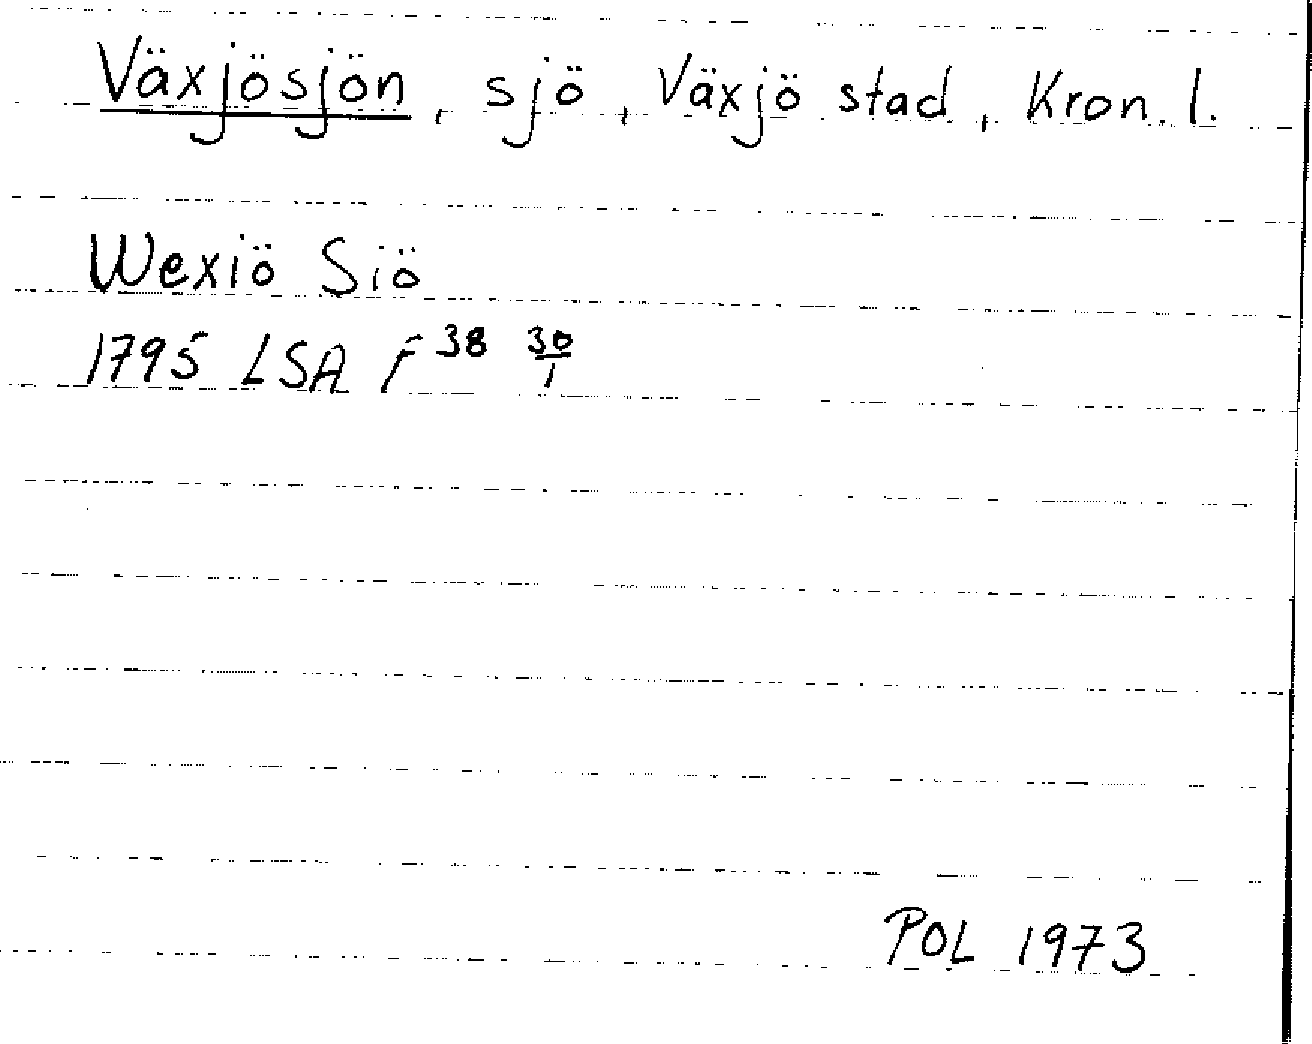 Växjösjön, sjö, Växjö stad, Kron. l.
Wexiö Siö
1795 LSA F 38 30/1
POL 1973